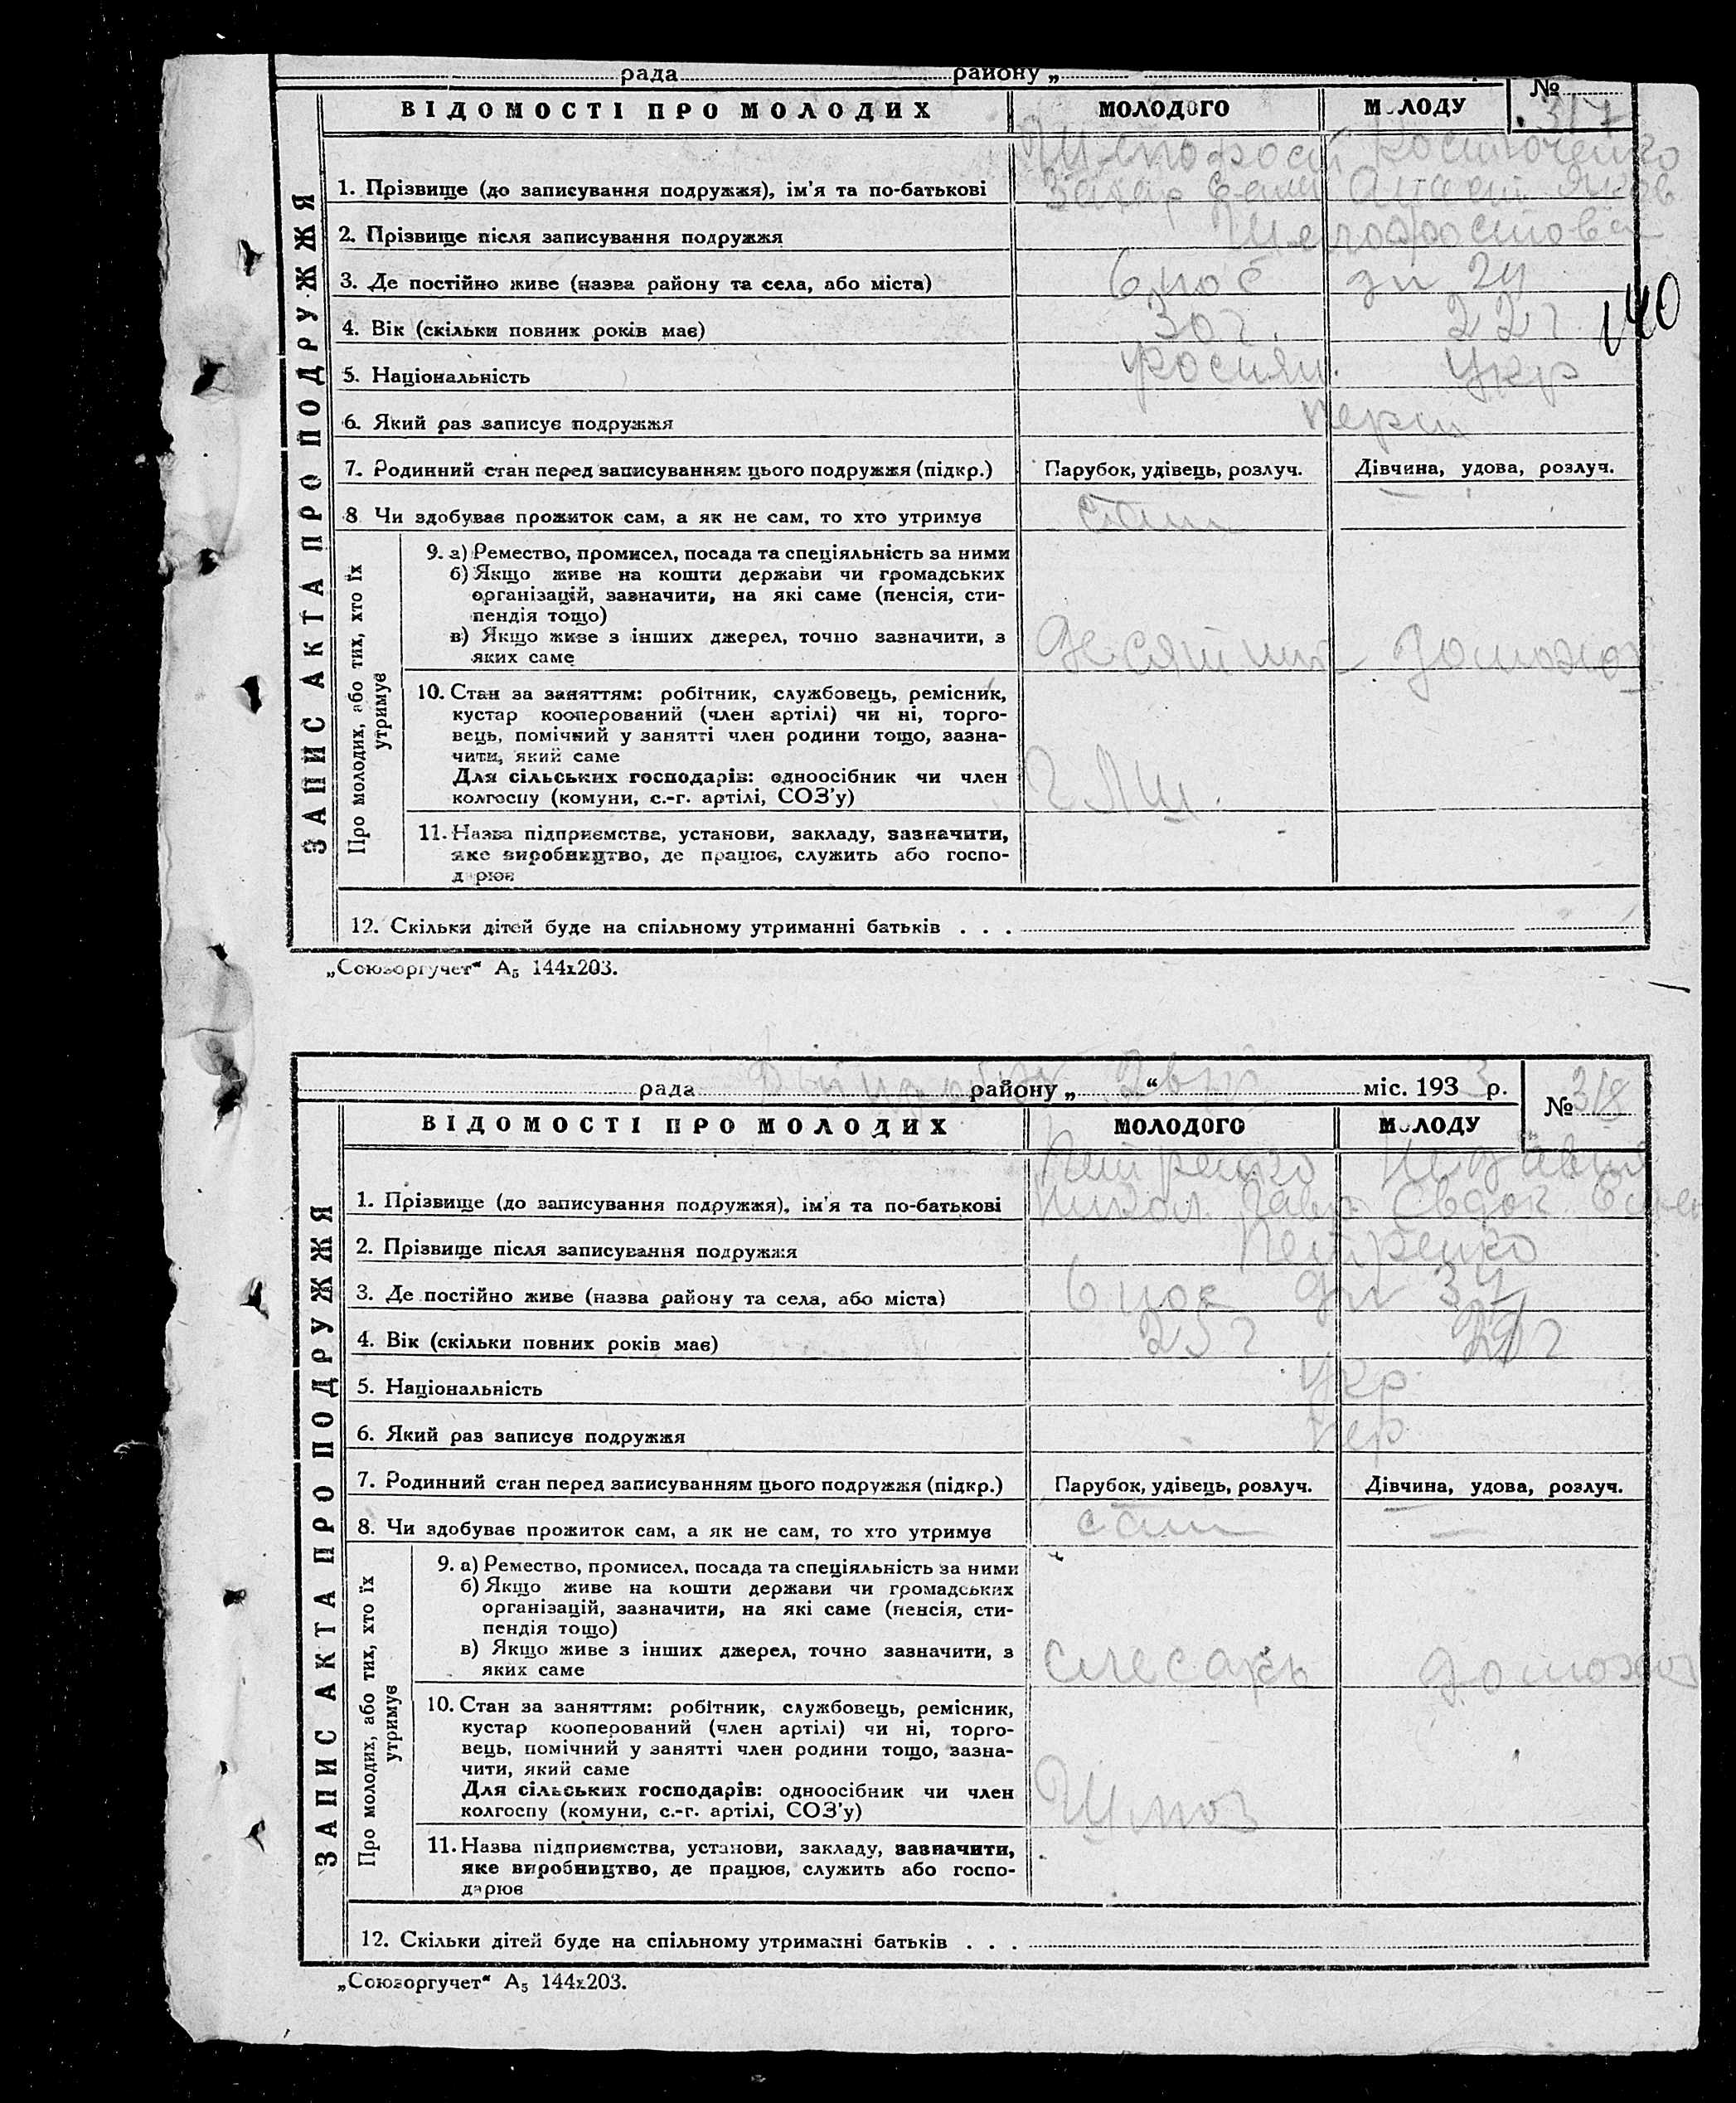 рада району „
№ 317
ВІДОМОСТІ ПРО МОЛОДИХ МОЛОДОГО МОЛОДУ
ЗАПИС АКТА ПРО ПОДРУЖЖЯ
Костюченко
1. Прізвище (до записування подружжя), ім'я та по-батькові Захар
2. Прізвище після записування подружжя
3. Де постійно живе (назва району та села, або міста)
4. Вік (скільки повних років має) 30 г. 22 г.
140
5. Національність росіян. Укр
6. Який раз записує подружжя перш
7. Родинний стан перед записуванням цього подружжя (підкр.) Парубок, удівець, розлуч. Дівчина, удова, розлуч.
8 Чи здобуває прожиток сам, а як не сам, то хто утримує сам —
Про молодих, або тих, хто їх утримує
9. а) Ремество, промисел, посада та спеціяльність за ними
б) Якщо живе на кошти держави чи громадських
організацій, зазначити, на які саме (пенсія, сти-
пендія тощо)
в) Якщо живе з інших джерел, точно зазначити, з
яких саме
10. Стан за заняттям: робітник, службовець, ремісник,
кустар кооперований (член артілі) чи ні, торго-
вець, помічний у занятті член родини тощо, зазна-
чити, який саме
Для сільських господарів: одноосібник чи член
колгоспу (комуни, с.-г. артілі, СОЗ'у)
11. Назва підприємства, установи, закладу, зазначити,
яке виробництво, де працює, служить або госпо-
дарює
12. Скільки дітей буде на спільному утриманні батьків . . .
„Союзоргучет“ А₅ 144х203.
рада району „ “ міс. 193 3 р. № 318
ВІДОМОСТІ ПРО МОЛОДИХ МОЛОДОГО МОЛОДУ
ЗАПИС АКТА ПРО ПОДРУЖЖЯ
Петренко
1. Прізвище (до записування подружжя), ім'я та по-батькові Никол. Павл Євдок
2. Прізвище після записування подружжя Петренко
3. Де постійно живе (назва району та села, або міста)
4. Вік (скільки повних років має) 25 г
5. Національність Укр
6. Який раз записує подружжя пер
7. Родинний стан перед записуванням цього подружжя (підкр.) Парубок, удівець, розлуч. Дівчина, удова, розлуч.
8. Чи здобуває прожиток сам, а як не сам, то хто утримує сам —
Про молодих, або тих, хто їх утримує
9. а) Ремество, промисел, посада та спеціяльність за ними
б) Якщо живе на кошти держави чи громадських
організацій, зазначити, на які саме (пенсія, сти-
пендія тощо)
в) Якщо живе з інших джерел, точно зазначити, з
яких саме слесарь домохоз
10. Стан за заняттям: робітник, службовець, ремісник,
кустар кооперований (член артілі) чи ні, торго-
вець, помічний у занятті член родини тощо, зазна-
чити, який саме
Для сільських господарів: одноосібник чи член
колгоспу (комуни, с.-г. артілі, СОЗ'у)
11. Назва підприємства, установи, закладу, зазначити,
яке виробництво, де працює, служить або госпо-
дарює
12. Скільки дітей буде на спільному утриманні батьків . . .
„Союзоргучет“ А₅ 144х203.